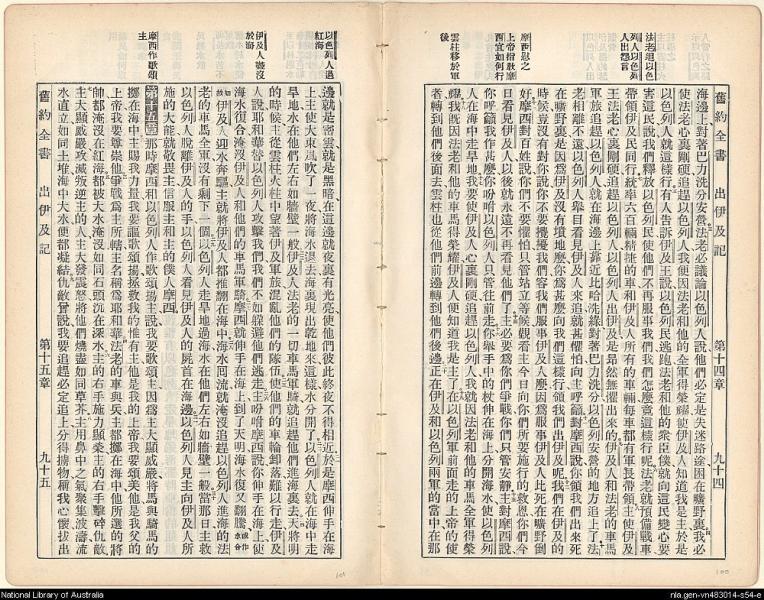 舊約全書　出伊及記　第十四章　九十四
法老追以色
列人以色列
人出怨言
摩西慰之
上帝指敎摩
西宜如何行
雲柱移於軍
後
海邊上對著巴力洗分安營法老必議論以色列人說他們必定是失迷路途困在曠野裏我必
使法老心裏剛硬追趕以色列人我便因法老和他的全軍得榮耀使伊及人知道我是主於是
以色列人就這樣行有人告訴伊及王說以色列民逃跑法老和他的衆臣僕就向這民變心要
害這民說我們釋放以色列民使他們不再服事我們我們怎麼竟這樣行呢法老就預備戰車
帶領伊及民同行統率六百輛精揀的車和伊及人所有的車輛每車都有軍長帶領主使伊及
王法老心裏剛硬追趕以色列人以色列人出伊及是昂然無懼出來的伊及人和法老的車馬
軍旅追趕以色列人就在海邊上靠近比哈洗緣對著巴力洗分以色列安營的地方追上了法
老相離不遠以色列人舉目看見伊及人來追就甚懼怕向主呼籲對摩西說你領我們出來死
在曠野裏是因爲伊及沒有墳地麼你爲甚麼向我們這樣行領我們出伊及呢我們在伊及的
時候豈沒有對你說你不要攪擾我們容我們服事伊及人麼因爲服事伊及人比死在曠野倒
好摩西對百姓說你們不要懼怕只管站立等候觀看主今日向你們所要施行的救恩你們今
日看見伊及人以後就永遠不再看見他們了主必要爲你們爭戰你們只管安靜主對摩西說
你呼籲我作甚麼你吩咐以色列人只管往前走你舉手中的杖伸在海上分開海水使以色列
人在海中走旱地我要使伊及人心裏剛硬追趕以色列人我就因法老和他的車馬全軍得榮
耀我旣因法老和他的車馬得榮耀伊及人便知道我是主了在以色列軍前面走的上帝的使
者轉到他們後面去雲柱也從他們前邊轉到他們後邊正在伊及和以色列兩軍的當中在那
舊約全書　出伊及記　第十五章　九十五
以色列人過
紅海
伊及人淹沒
於海
摩西作歌頌
主
邊就是密雲就是黑暗在這邊就夜裏有光亮使他們彼此終夜不得相近於是摩西伸手在海
上主使大東風吹了一夜將海水退去海裏現出乾地來這樣水分開了以色列人就在海中走
旱地水在他們左右如牆壁一般伊及人法老的一切車馬軍騎就追趕他們進海裏去天將明
的時候主從雲柱火柱中望著伊及軍旅混亂他們的隊伍使他們的車輪卸落難以行走伊及
人說耶和華替以色列人攻擊我們我們不如躱避他們逃走主吩咐摩西說你伸手在海上使
海水復合淹沒伊及人和他們的車馬軍騎摩西就伸手在海上到了天明海水復又翻騰
伊及人迎水奔驅主就將伊及人都推翻在海中海水回流就淹沒了追趕以色列人進海的法
老的車馬全軍沒有剩下一個以色列人走旱地過海水在他們左右如牆壁一般當那日主救
以色列人脫離伊及人的手以色列人看見伊及人的屍首在海邊以色列人見主向伊及人所
施的大能就敬畏主信服主和主的僕人摩西
第十五章　那時摩西和以色列人作歌頌揚主說我要歌頌主因爲主大顯威嚴將馬與騎馬的
擲在海中主賜我力量我要謳歌頌揚拯救我的惟有主他是我的上帝我要頌美他是我父的
上帝我要尊崇他爭戰事主所轄主名稱爲耶和華法老的車與兵主都擲在海中他所選的將
帥都淹沒在紅海都被大水淹沒如同石頭沉在深水主的右手施力顯榮主的右手擊碎仇敵
主大顯威嚴攻滅叛逆主的人主大發震怒將他們燒盡如同草芥主用鼻中之氣聚集波濤流
水直立如同土堆海中大水便都凝結仇敵曾說我要追趕必定追上分得擄物稱我心懷拔出
National Library of Australia
nla.gen-vn483014-s54-e